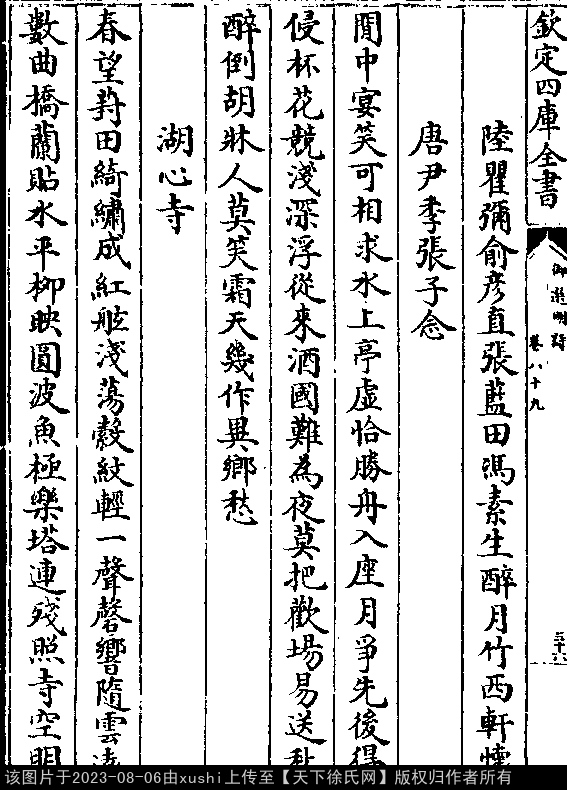 欽定四庫全書
御選明詩
卷八十九
三十六
陸瞿彌俞彥直張藍田馮素生醉月竹西軒懷
唐尹季張子念
閒中宴笑可相求水上亭虛恰勝舟入座月爭先後得
侵杯花競淺深浮從來酒國難為夜莫把歡場易送秋
醉倒胡牀人莫笑霜天幾作異鄉愁
湖心寺
春望葑田綺繡成紅舷淺蕩縠紋輕一聲磬響隨雲遠
數曲橋蘭貼水平柳映圓波魚極樂塔連殘照寺空明
该图片于2023-08-06由xushi上传至【天下徐氏网】版权归作者所有